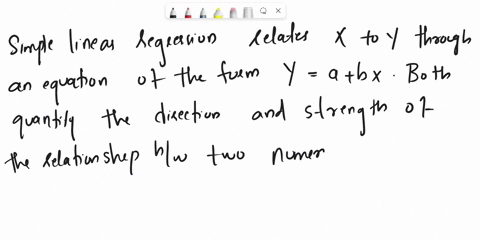 Simple linear regression relates X to Y through
an equation of the form Y = a + bx. Both
quantify the direction and strength of
the relationship b/w two numer